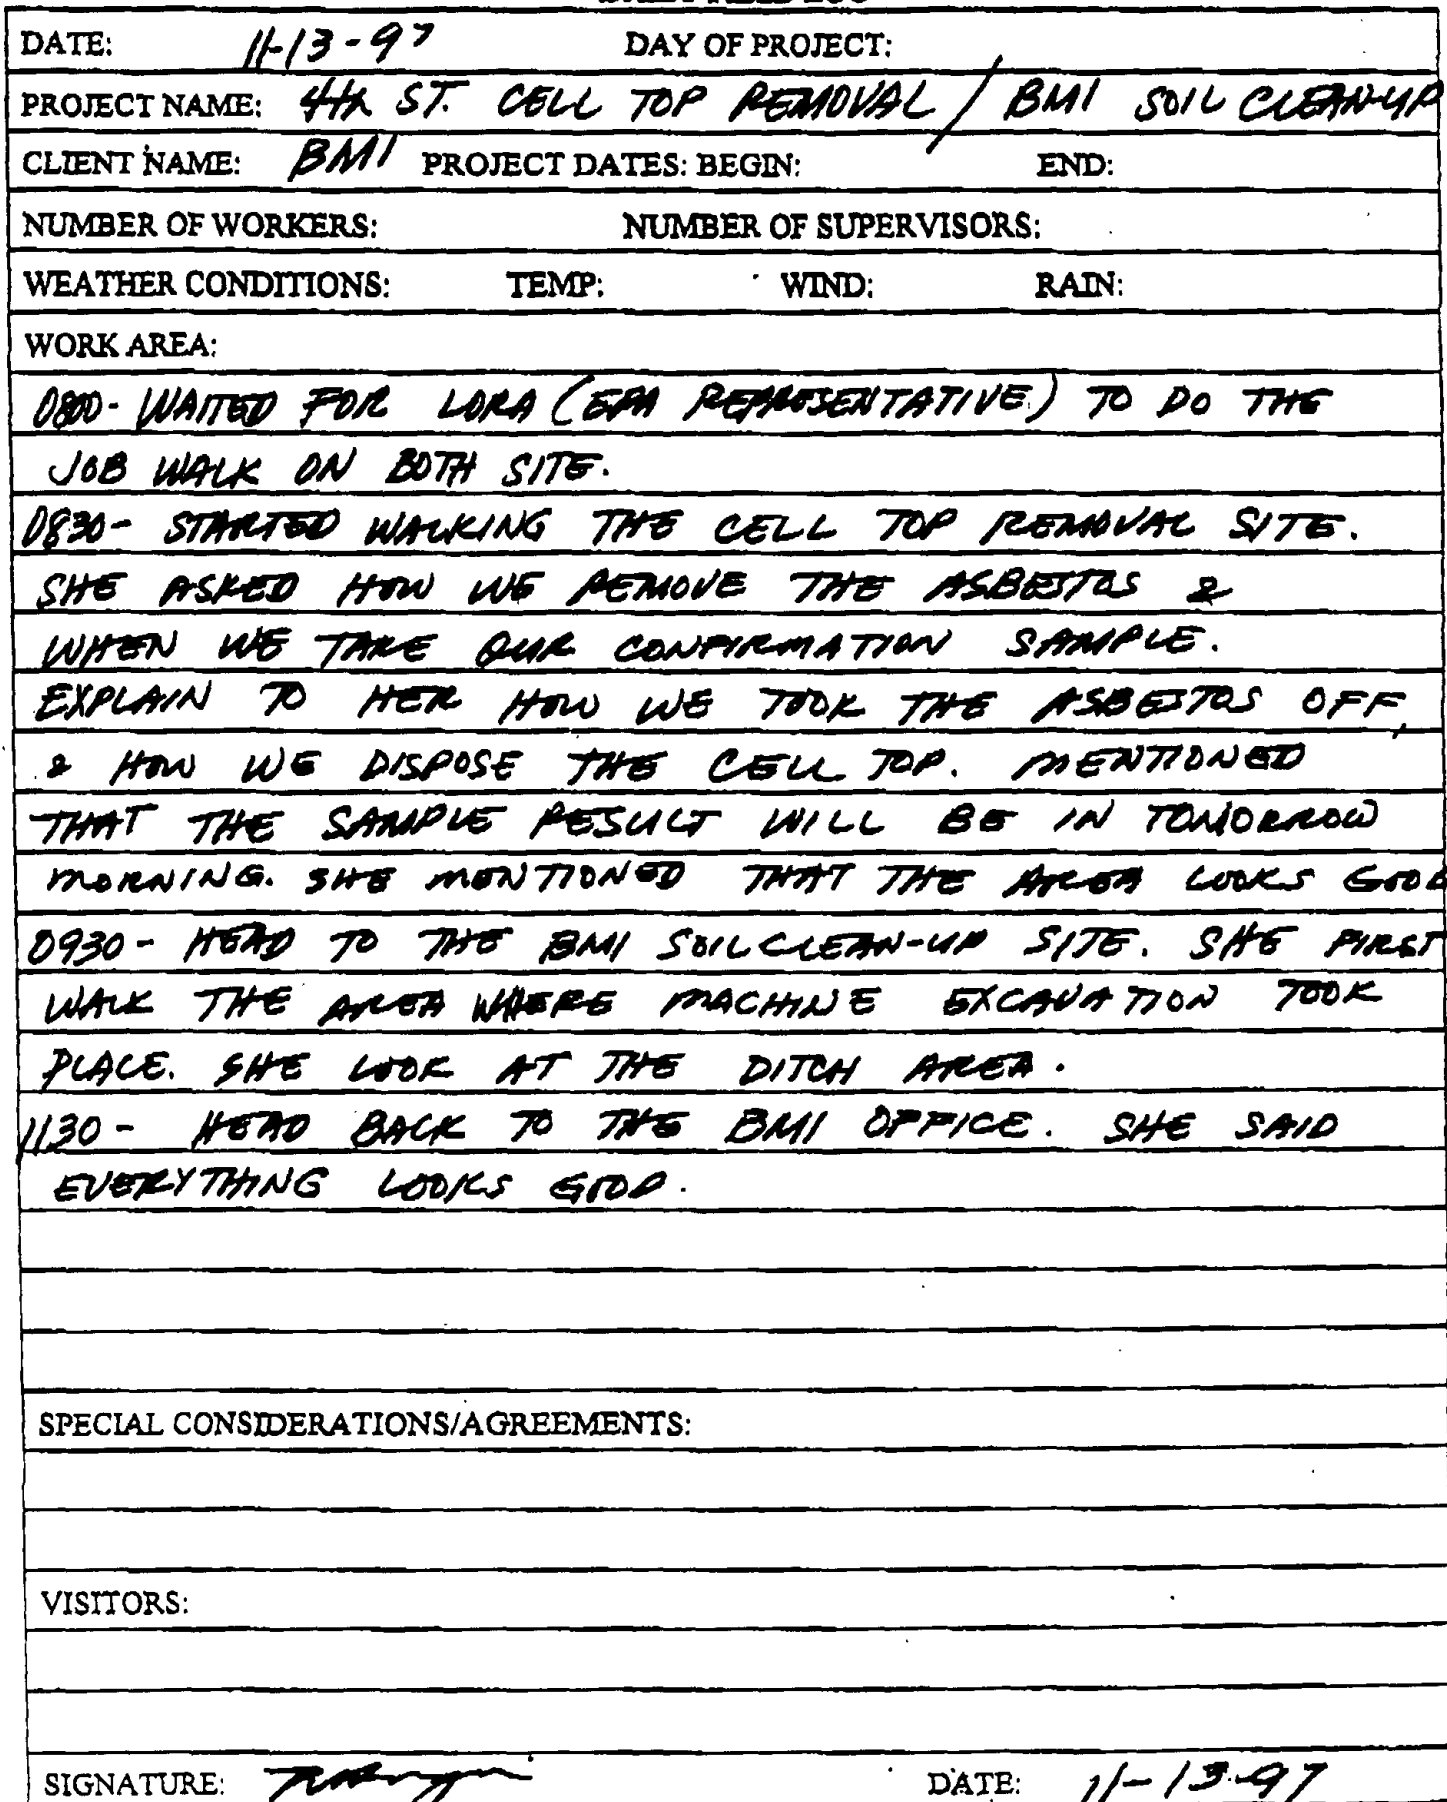 DATE: 11-13-97 DAY OF PROJECT:
PROJECT NAME: 4th ST. CELL TOP REMOVAL / BMI SOIL CLEAN-UP
CLIENT NAME: BMI PROJECT DATES: BEGIN: END:
NUMBER OF WORKERS: NUMBER OF SUPERVISORS:
WEATHER CONDITIONS: TEMP: WIND: RAIN:
WORK AREA:
0800- WAITED FOR LORA (EPA REPRESENTATIVE) TO DO THE
JOB WALK ON BOTH SITE.
0830- STARTED WALKING THE CELL TOP REMOVAL SITE.
SHE ASKED HOW WE REMOVE THE ASBESTOS &
WHEN WE TAKE OUR CONFIRMATION SAMPLE.
EXPLAIN TO HER HOW WE TOOK THE ASBESTOS OFF,
& HOW WE DISPOSE THE CELL TOP. MENTIONED
THAT THE SAMPLE RESULT WILL BE IN TOMORROW
MORNING. SHE MENTIONED THAT THE AREA LOOKS GOOD
0930- HEAD TO THE BMI SOIL CLEAN-UP SITE. SHE FIRST
WALK THE AREA WHERE MACHINE EXCAVATION TOOK
PLACE. SHE LOOK AT THE DITCH AREA.
1130- HEAD BACK TO THE BMI OFFICE. SHE SAID
EVERYTHING LOOKS GOOD.
SPECIAL CONSIDERATIONS/AGREEMENTS:
VISITORS:
SIGNATURE: DATE: 11-13-97